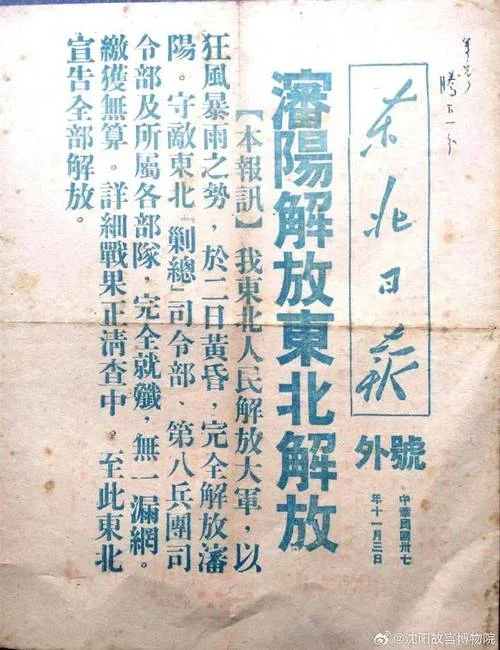 东北日报
號外
中華民國卅七
年十一月三日
瀋陽解放東北解放
【本報訊】我東北人民解放大軍，以
狂風暴雨之勢，於二日黃昏，完全解放瀋
陽。守敵東北『剿總』司令部、第八兵團司
令部及所屬各部隊，完全就殲，無一漏網。
繳獲無算。詳細戰果正清查中。至此東北
宣告全部解放。
@沈阳故宫博物院